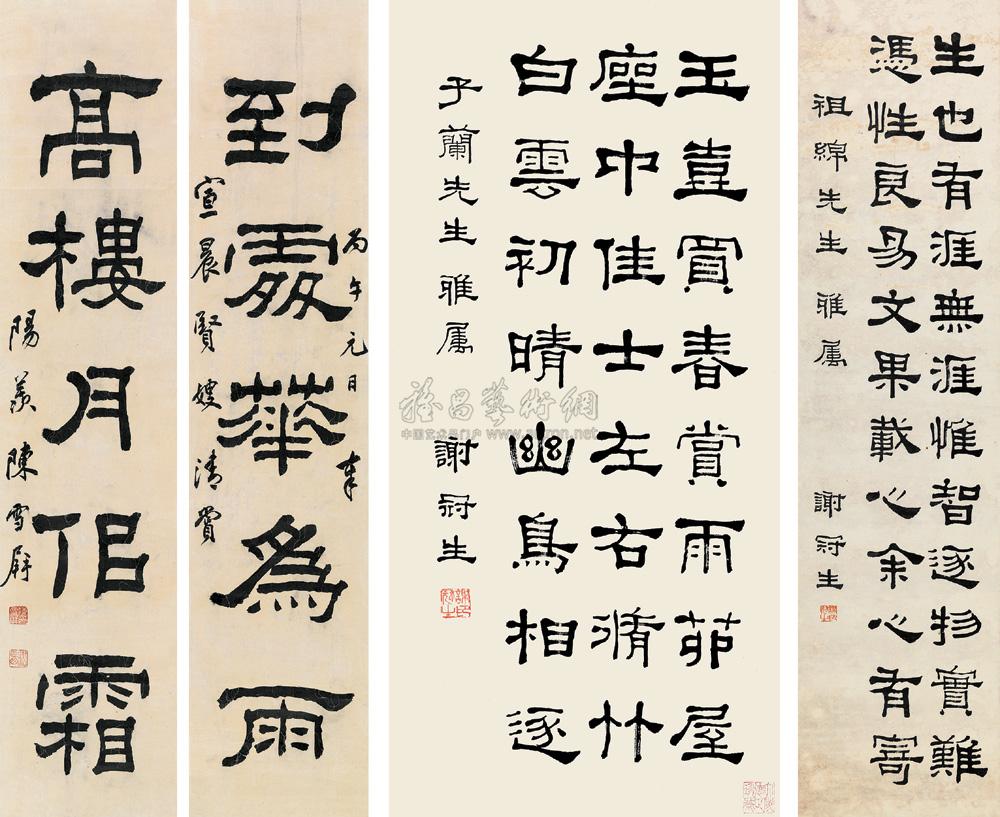 生也有涯無涯惟智逐物實難
憑性良易文果載心余心有寄
祖綿先生 雅属 謝冠生
玉壺買春賞雨茆屋
座中佳士左右脩竹
白雲初晴幽鳥相逐
子蘭先生雅属 謝冠生
丙午元日 奉
到處華為雨
宣晨賢嫂清賞
髙樓月佀霜
陽羨陳雪屏
藝術網
中国艺术品门户